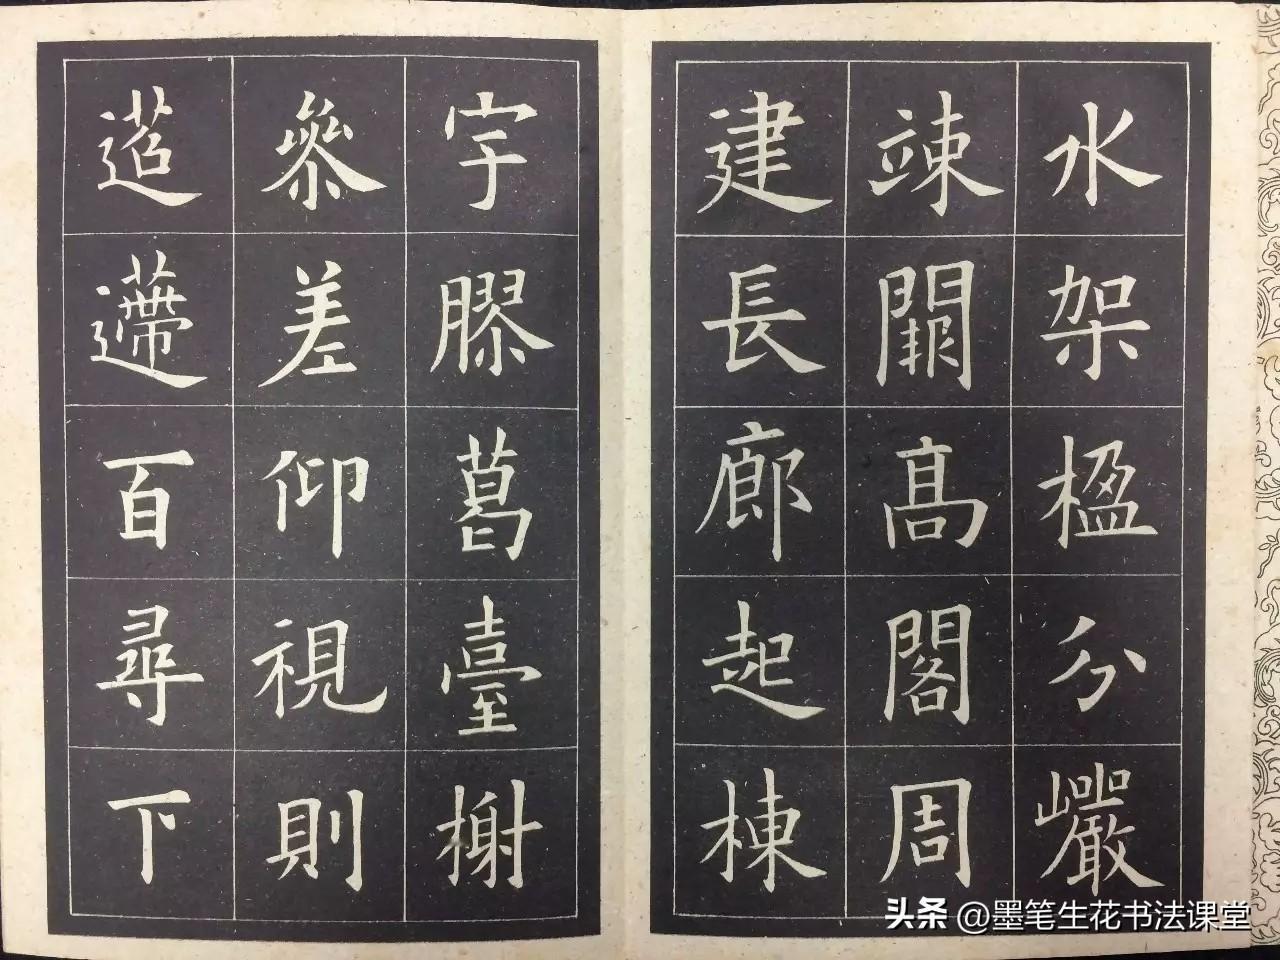 水架楹分巖
竦闕髙閣周
建長廊起棟
宇膠葛臺榭
參差仰視則
迢遰百尋下
头条 @墨笔生花书法课堂